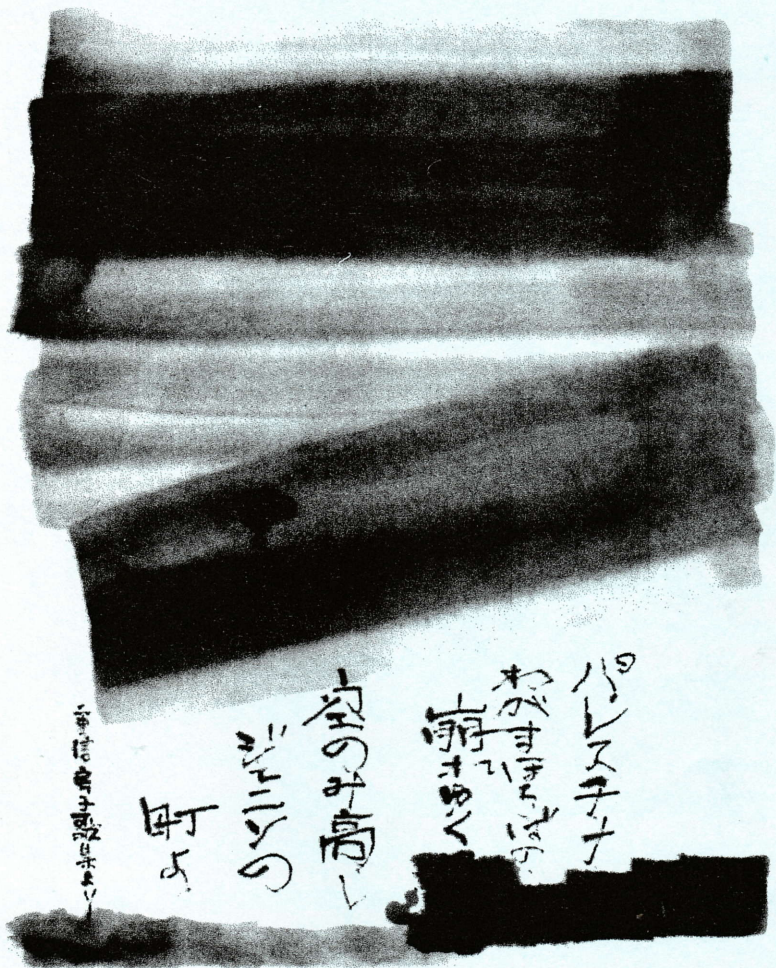 パレスチナ
わがまほろばの
崩れゆく
空のみ高し
ジェニンの
町よ
重信房子歌集より